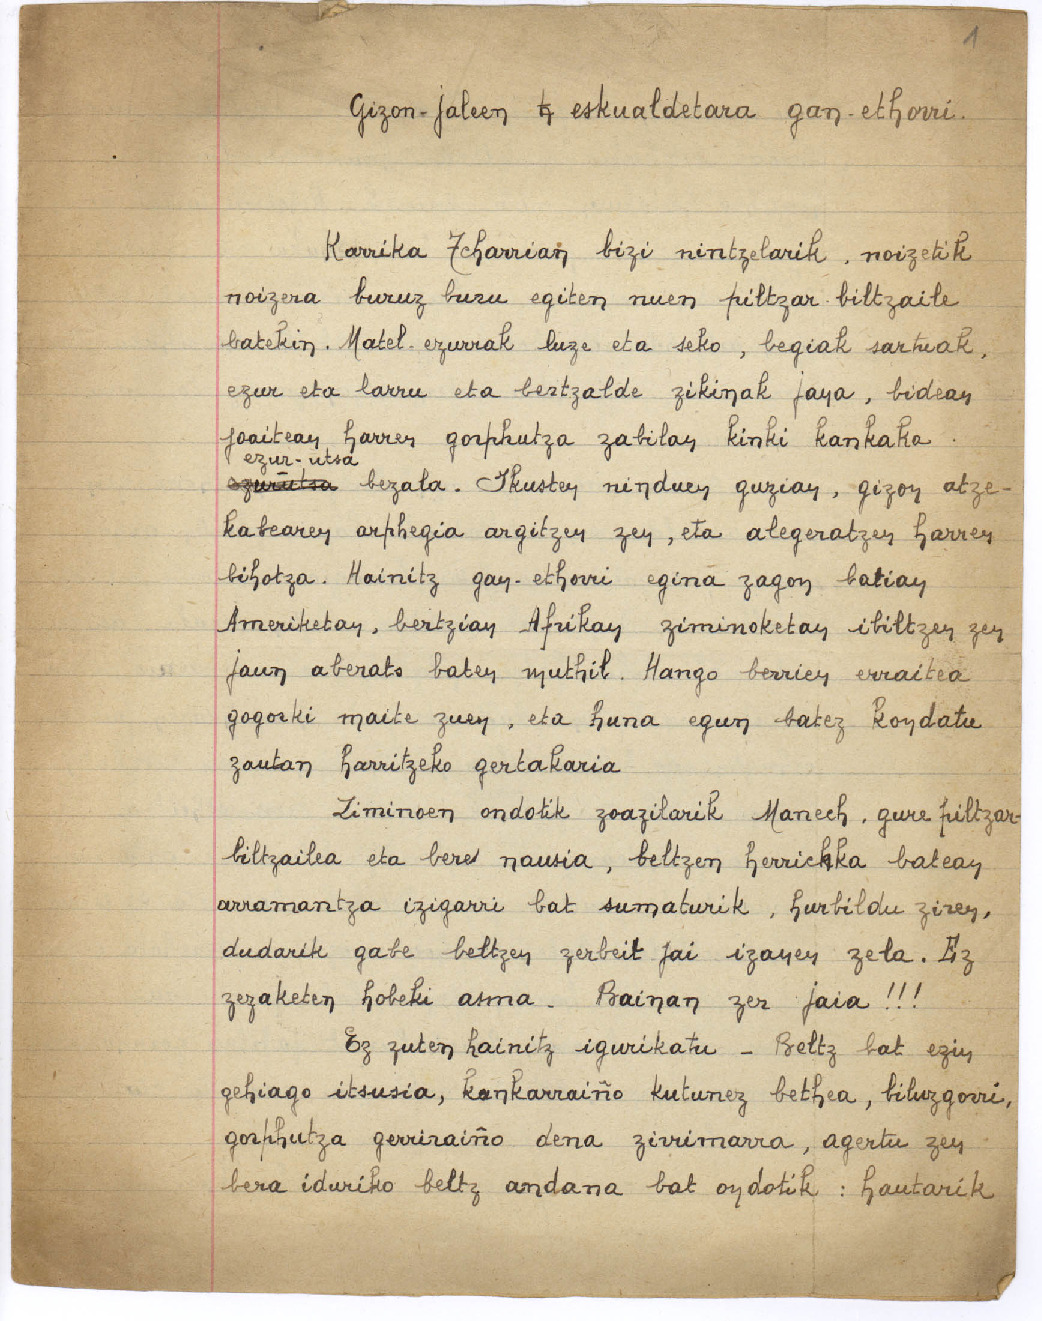 1
Gizon-jaleen eskualdetara gan-ethorri.
Karrika Zcharrian bizi nintzelarik, noizetik
noizera buruz buru egiten nuen piltzar-biltzaile
batekin. Matel-ezurrak luze eta seko, begiak sartuak,
ezur eta larru eta bertzalde zikinak jana, bidean
joaitean harren gorphutza zabilan kinki kankaka
ezur-utsa
ezur utsa bezala. Ikusten ninduen guzian, gizon atze-
kabearen arphegia argitzen zen, eta alegeratzen harren
bihotza. Hainitz gan-ethorri egina zagon batian
Ameriketan, bertzian Afrikan ziminoketan ibiltzen zen
jaun aberats baten muthil. Hango berrien erraitea
gogorki maite zuen, eta huna egun batez kondatu
zautan harritzeko gertakaria
Ziminoen ondotik zoazilarik Manech, gure piltzar-
biltzailea eta bere nausia, beltzen herrichka batean
arramantza izigarri bat sumaturik, hurbildu ziren,
dudarik gabe beltzen zerbeit jai izanen zela. Ez
zezaketen hobeki asma. Bainan zer jaia !!!
Ez zuten hainitz igurikatu - Beltz bat ezin
gehiago itsusia, kankarraiño kutunez bethea, biluzgorri,
gorphutza gerriraiño dena zirrimarra, agertu zen
bera iduriko beltz andana bat ondotik : hautarik